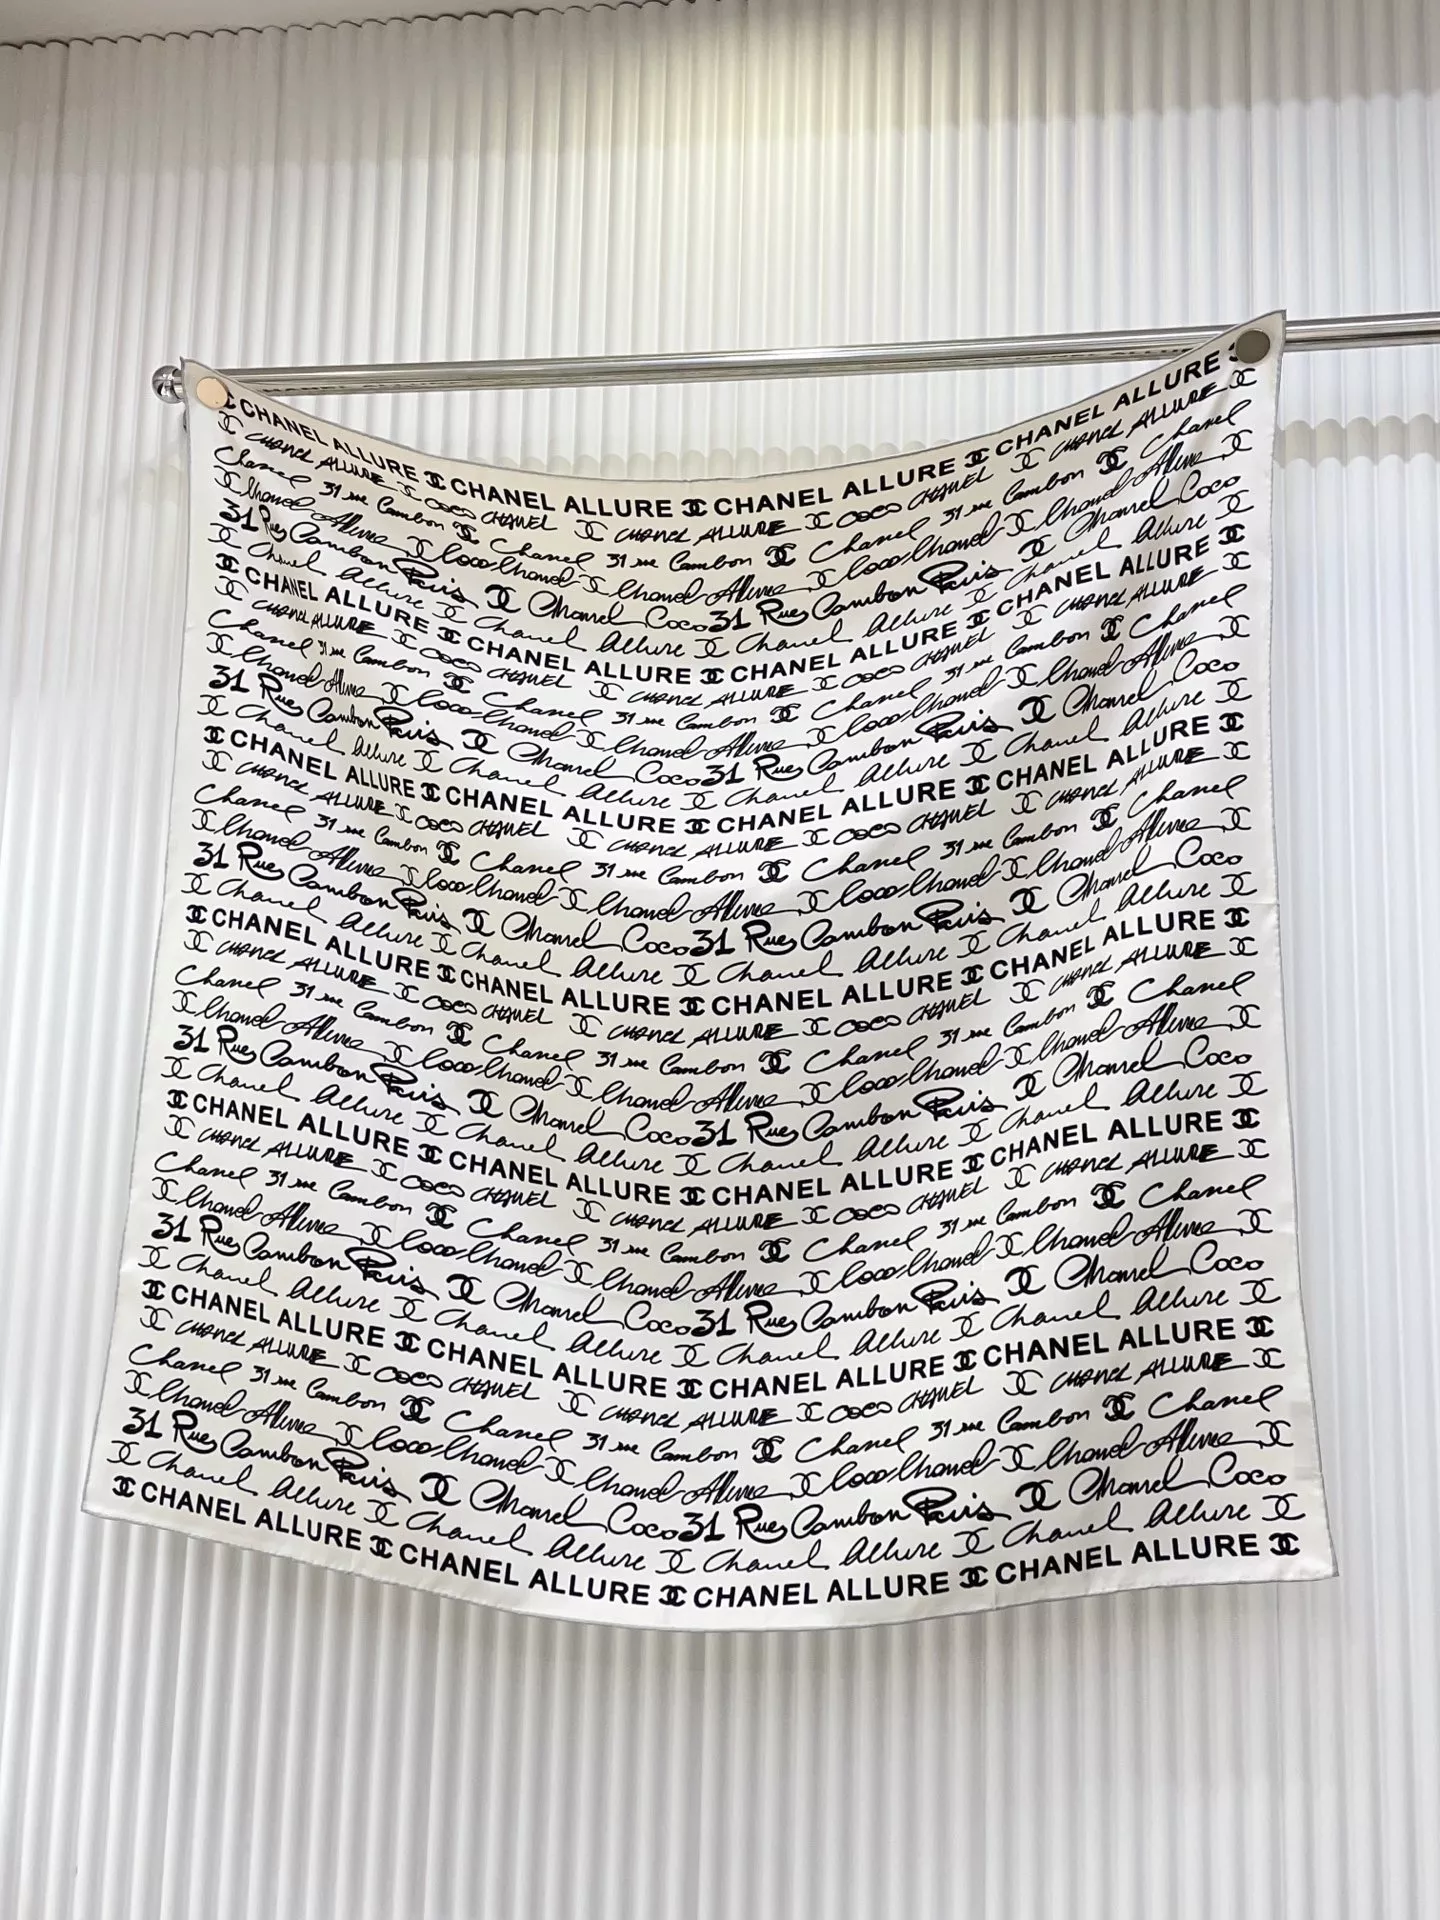 CHANEL ALLURE CHANEL ALLURE CHANEL ALLURE CHANEL ALLURE
CHANEL ALLURE COCO CHANEL CHANEL ALLURE COCO CHANEL CHANEL ALLURE
Chanel 31 rue Cambon Chanel 31 rue Cambon Chanel 31 rue Cambon Chanel
Chanel Allure Coco Chanel Chanel Allure Coco Chanel Chanel Allure
31 Rue Cambon Paris Chanel Coco 31 Rue Cambon Paris Chanel Coco
Chanel Allure Chanel Allure Chanel Allure Chanel Allure
CHANEL ALLURE CHANEL ALLURE CHANEL ALLURE CHANEL ALLURE
CHANEL ALLURE COCO CHANEL CHANEL ALLURE COCO CHANEL CHANEL ALLURE
Chanel 31 rue Cambon Chanel 31 rue Cambon Chanel 31 rue Cambon Chanel
Chanel Allure Coco Chanel Chanel Allure Coco Chanel Chanel Allure
31 Rue Cambon Paris Chanel Coco 31 Rue Cambon Paris Chanel Coco
Chanel Allure Chanel Allure Chanel Allure Chanel Allure
CHANEL ALLURE CHANEL ALLURE CHANEL ALLURE CHANEL ALLURE
CHANEL ALLURE COCO CHANEL CHANEL ALLURE COCO CHANEL CHANEL ALLURE
Chanel 31 rue Cambon Chanel 31 rue Cambon Chanel 31 rue Cambon Chanel
Chanel Allure Coco Chanel Chanel Allure Coco Chanel Chanel Allure
31 Rue Cambon Paris Chanel Coco 31 Rue Cambon Paris Chanel Coco
Chanel Allure Chanel Allure Chanel Allure Chanel Allure
CHANEL ALLURE CHANEL ALLURE CHANEL ALLURE CHANEL ALLURE
CHANEL ALLURE COCO CHANEL CHANEL ALLURE COCO CHANEL CHANEL ALLURE
Chanel 31 rue Cambon Chanel 31 rue Cambon Chanel 31 rue Cambon Chanel
Chanel Allure Coco Chanel Chanel Allure Coco Chanel Chanel Allure
31 Rue Cambon Paris Chanel Coco 31 Rue Cambon Paris Chanel Coco
Chanel Allure Chanel Allure Chanel Allure Chanel Allure
CHANEL ALLURE CHANEL ALLURE CHANEL ALLURE CHANEL ALLURE
CHANEL ALLURE COCO CHANEL CHANEL ALLURE COCO CHANEL CHANEL ALLURE
Chanel 31 rue Cambon Chanel 31 rue Cambon Chanel 31 rue Cambon Chanel
Chanel Allure Coco Chanel Chanel Allure Coco Chanel Chanel Allure
31 Rue Cambon Paris Chanel Coco 31 Rue Cambon Paris Chanel Coco
Chanel Allure Chanel Allure Chanel Allure Chanel Allure
CHANEL ALLURE CHANEL ALLURE CHANEL ALLURE CHANEL ALLURE
CHANEL ALLURE COCO CHANEL CHANEL ALLURE COCO CHANEL CHANEL ALLURE
Chanel 31 rue Cambon Chanel 31 rue Cambon Chanel 31 rue Cambon Chanel
Chanel Allure Coco Chanel Chanel Allure Coco Chanel Chanel Allure
31 Rue Cambon Paris Chanel Coco 31 Rue Cambon Paris Chanel Coco
Chanel Allure Chanel Allure Chanel Allure Chanel Allure
CHANEL ALLURE CHANEL ALLURE CHANEL ALLURE CHANEL ALLURE